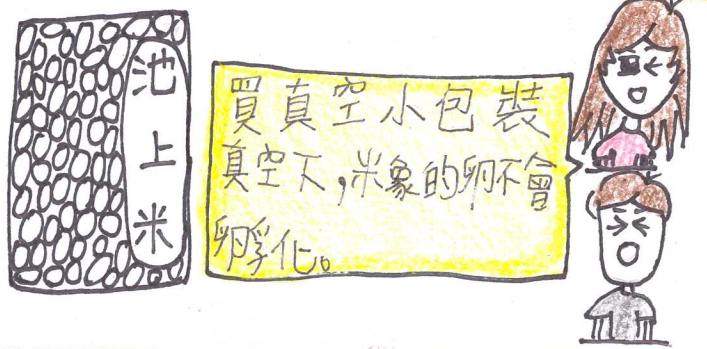 池上米
買真空小包裝
真空下,米象的卵不會
孵化。